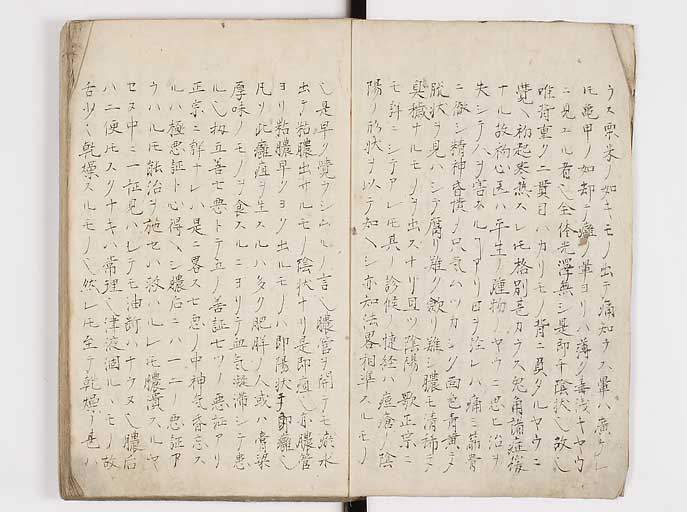 ウス粟米ノ如キモノ出テ痛知ウス暈ハ広クレ
ㇳモ亀甲ノ如却テ癰ノ暈ヨリハ薄ク毒浅キヤウ
ニ見エル者也全体光澤無シ是即チ陰状也故ニ
唯背重ク二貫目ハカリモノ背ニ負タルヤウニ
覚ヘ初起寒熱スレㇳモ格別
ナル故初心医ハ平生ノ腫物ノヤウニ思ヒ治ヲ
失シテハヲ害
シ精神昏憒ノ只気ムツカシク面色青黄ニテ
脱状ヲ見ハシテ腐リ難ク斂リ難シ膿モ清稀ニテ
臭穢ナルモノヲ出スナリ且ツ陰陽ノ歌正宗ニ
モ詳ニシテアレㇳモ其ノ診候捷経ハ痘瘡ノ陰
陽ノ形状ヲ以テ知ヘシ亦知法畧相準スルモノ
也是早ク覚ラシムルノ言也膿管ヲ開テモ瘀水
出テ粘膿出サルモノ陰状ナリ是即疽也亦膿管
ヨリ粘膿早クヨク出ルモノハ即陽状ナリ即癰也
凡ソ此癰疽ヲ生スルハ多ク肥胖ノ人或ハ膏粱
厚味ノモノヲ食スルニヨリテ血気凝滞シテ患
ル也扨五善七悪トテ五ツノ善証七ツノ悪証アリ
正宗ニ詳ナレハ是ニ畧ス七悪ノ中神気昏忘ス
ルハ極悪証ト心得ヘシ膿后ニハ一二ノ悪証ア
ラハルㇳモ能治ヲ施セハ救ハルレㇳモ膿潰スルヤ
セヌ中ニ一証見ハレテモ油断ハナラヌ也膿后
ハ二便ㇳモスクナキハ常理也津液涸ルハモノ故
舌少シ乾燥スルモノ也然レㇳモ至テ乾燥ノ